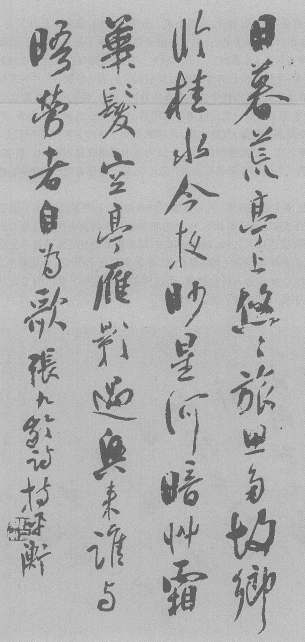 日暮荒亭上悠〻旅思多故鄉
临桂水今夜眇星河暗艸霜
華髮空亭雁影過興来誰与
晤勞者自为歌 張九齡詩